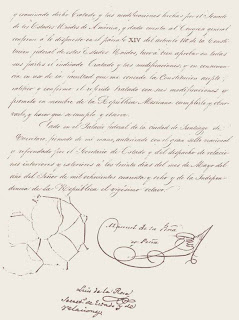 y examinado dicho Tratado y las modificaciones hechas por el Senado
de los Estados Unidos de America, y dada cuenta al Congreso general
conforme a lo dispuesto en el párrafo XIV del artículo 110 de la Consti-
tucion federal de estos Estados Unidos, tuvo a bien aprobar en todas
sus partes el indicado Tratado y las modificaciones; y en consecuen-
cia, en uso de la facultad que me concede la Constitucion acepto,
ratifico y confirmo el referido Tratado con sus modificaciones, y
prometo en nombre de la República Mexicana cumplirlo y obser-
varlo, y hacer que se cumpla y observe.
Dado en el Palacio federal de la ciudad de Santiago de
Querétaro, firmado de mi mano, autorizado con el gran sello nacional
y refrendado por el Secretario de Estado y del despacho de relacio-
nes interiores y exteriores a los treinta dias del mes de Mayo del
año del Señor de mil ochocientos cuarenta y ocho y de la Indepen-
dencia de la República el vigésimo octavo.
Manuel de la Peña
y Peña
Luis de la Rosa
Secret. de Estado y de
relaciones